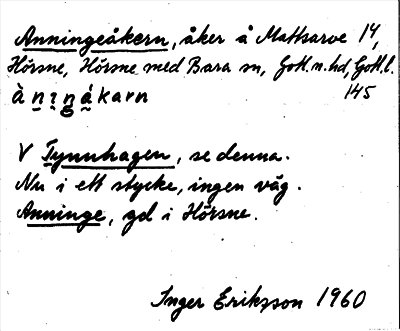 Anningeåkern, åker å Mattsarve 14,
Hörsne, Hörsne med Bara sn, Gotl. n. hd, Gotl. l.
à n ı n g á karn 145
V Tynnhagen, se denna.
Nu i ett stycke, ingen väg.
Anninge, gd i Hörsne.
Inger Eriksson 1960